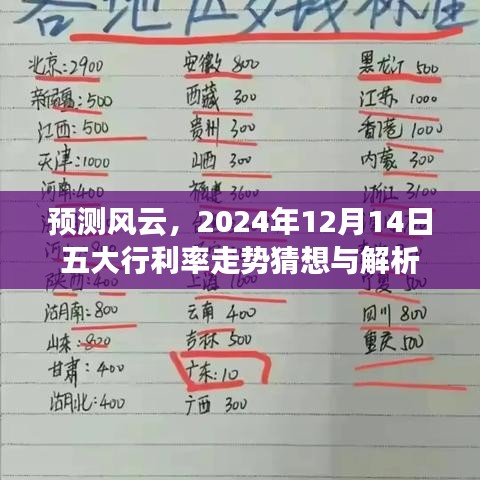 各地压岁钱标准
北京:2900 安徽 800 黑龙江 500
新疆:500 西藏 300 江苏 1000
江西:500 贵州 300 香港 1000
天津:1000 山西 300 内蒙 300
河南:400 福建 3600 浙江 3100
预测风云，2024年12月14日
五大行利率走势猜想与解析
湖南:800 云南 400 四川 800
山东:800 吉林 500 重庆 500
甘肃:400 广东:10
湖北:400 广西 300